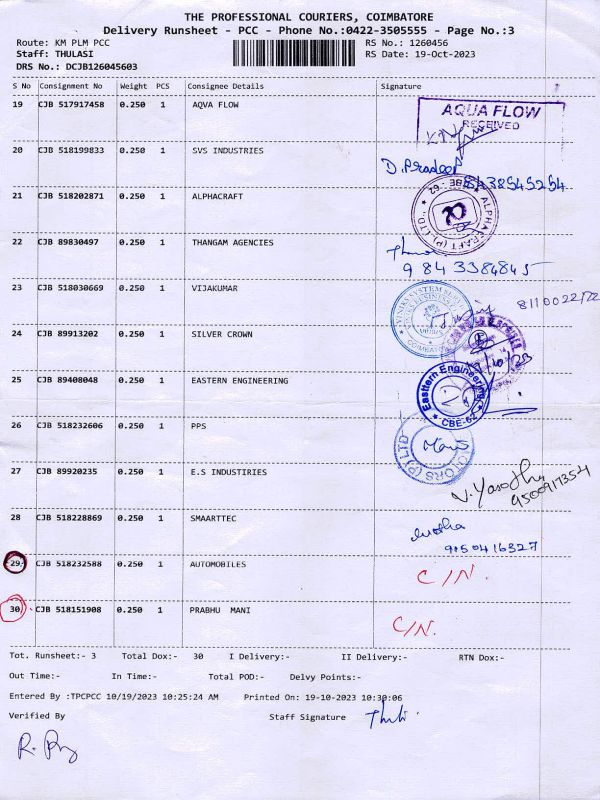 THE PROFESSIONAL COURIERS, COIMBATORE
Delivery Runsheet - PCC - Phone No.:0422-3505555 - Page No.:3
Route: KM PLM PCC RS No.: 1260456
Staff: THULASI RS Date: 19-Oct-2023
DRS No.: DCJB126045603
S No Consignment No Weight PCS Consignee Details Signature
19 CJB 517917458 0.250 1 AQVA FLOW
AQUA FLOW
RECEIVED
20 CJB 518199833 0.250 1 SVS INDUSTRIES
D. Pradeep
21 CJB 518202871 0.250 1 ALPHACRAFT
ALPHACRAFT (P) LTD CBE - 62
22 CJB 89830497 0.250 1 THANGAM AGENCIES
9843384845
23 CJB 518030669 0.250 1 VIJAKUMAR
24 CJB 89913202 0.250 1 SILVER CROWN
25 CJB 89408048 0.250 1 EASTERN ENGINEERING
Easttern Engineering
CBE-62
26 CJB 518232606 0.250 1 PPS
27 CJB 89920235 0.250 1 E.S INDUSTIRIES
V. Yasodha
9500917354
28 CJB 518228869 0.250 1 SMAARTTEC
29 CJB 518232588 0.250 1 AUTOMOBILES
C/N.
30 CJB 518151908 0.250 1 PRABHU MANI
C/N.
Tot. Runsheet:- 3 Total Dox:- 30 I Delivery:- II Delivery:- RTN Dox:-
Out Time:- In Time:- Total POD:- Delvy Points:-
Entered By :TPCPCC 10/19/2023 10:25:24 AM Printed On: 19-10-2023 10:30:06
Verified By Staff Signature